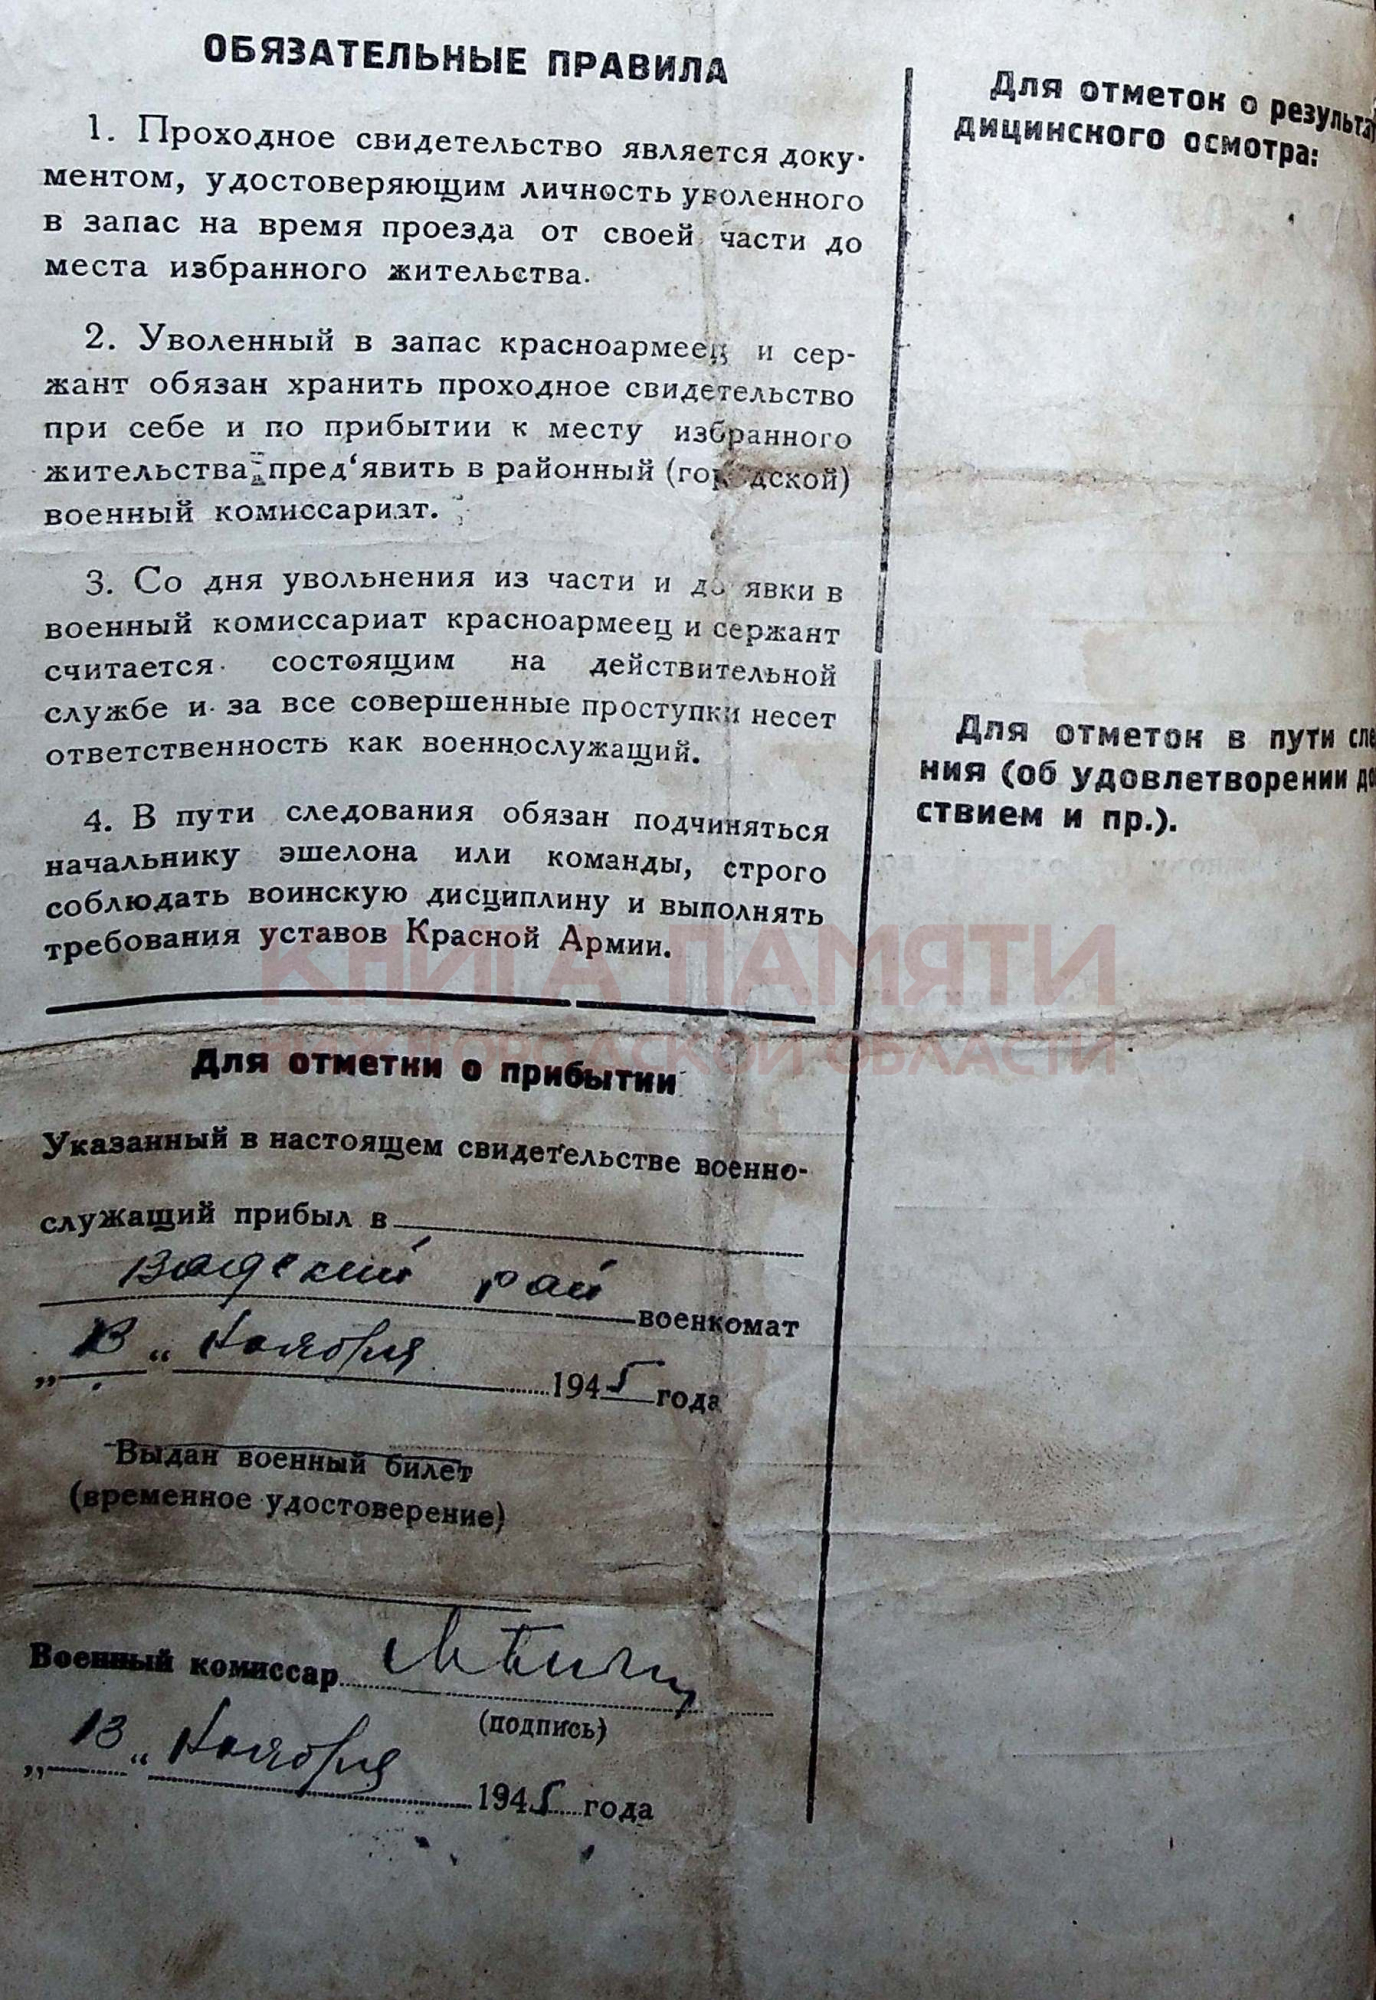 ОБЯЗАТЕЛЬНЫЕ ПРАВИЛА
1. Проходное свидетельство является доку-
ментом, удостоверяющим личность уволенного
в запас на время проезда от своей части до
места избранного жительства.
2. Уволенный в запас красноармеец и сер-
жант обязан хранить проходное свидетельство
при себе и по прибытии к месту избранного
жительства пред‘явить в районный (городской)
военный комиссариат.
3. Со дня увольнения из части и до явки в
военный комиссариат красноармеец и сержант
считается состоящим на действительной
службе и за все совершенные проступки несет
ответственность как военнослужащий.
4. В пути следования обязан подчиняться
начальнику эшелона или команды, строго
соблюдать воинскую дисциплину и выполнять
требования уставов Красной Армии.
Для отметки о прибытии
Указанный в настоящем свидетельстве военно-
служащий прибыл в
Вадский рай
военкомат
„ 13 “ Ноября 1945 года
Выдан военный билет
(временное удостоверение)
Военный комиссар
(подпись)
„ 13 “ Ноября 1945 года
Для отметок о результа
дицинского осмотра:
Для отметок в пути сле
ния (об удовлетворении до
ствием и пр.).
КНИГА ПАМЯТИ
НИЖЕГОРОДСКОЙ ОБЛАСТИ